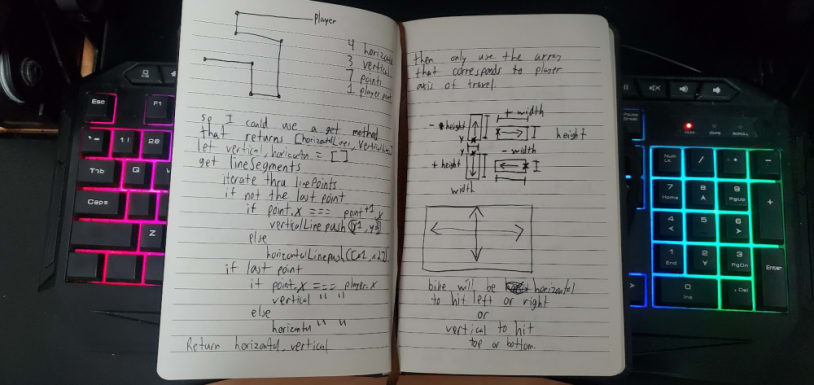 Player
4 horizontal
3 vertical
7 points
1 player point
so I could use a get method
that returns [horizontalLines, verticalLines]
let vertical, horizontal = []
get lineSegments
iterate thru linePoints
if not the last point
if point.x === point+1.x
verticalLine.push([y1, y2])
else
horizontalLine.push([x1, x2])
if last point
if point.x === player.x
vertical " "
else
horizontal " "
Return horizontal, vertical
then only use the array
that corresponds to player
axis of travel.
+ width
- height
height
- width
+ height
width
bike will be horizontal
to hit left or right
or
vertical to hit
top or bottom.
Esc
F1
Tab
Caps
Z
Num
7
Home
8
9
PgUp
+
4
5
6
1
End
2
3
PgDn
Enter
0
Ins
. Del